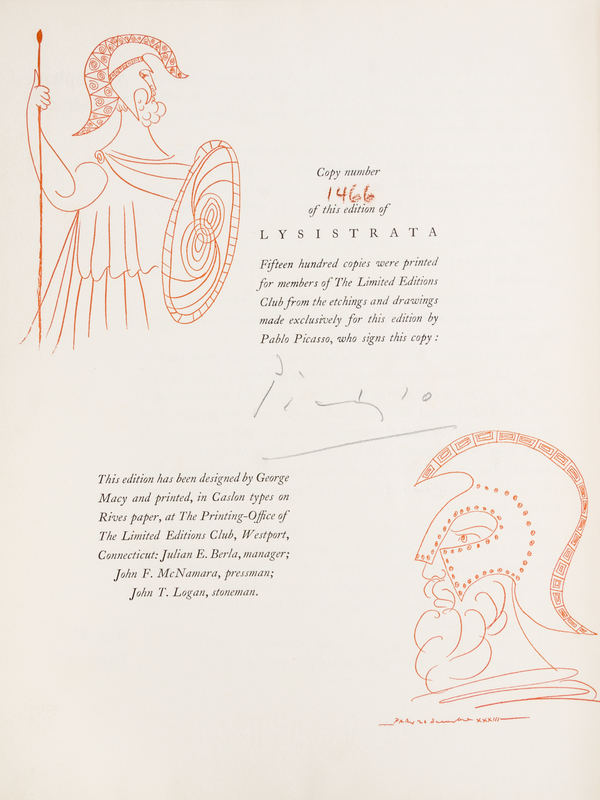 Copy number
1466
of this edition of
LYSISTRATA
Fifteen hundred copies were printed
for members of The Limited Editions
Club from the etchings and drawings
made exclusively for this edition by
Pablo Picasso, who signs this copy:
Picasso
This edition has been designed by George
Macy and printed, in Caslon types on
Rives paper, at The Printing-Office of
The Limited Editions Club, Westport,
Connecticut: Julian E. Berla, manager;
John F. McNamara, pressman;
John T. Logan, stoneman.
XXXIII